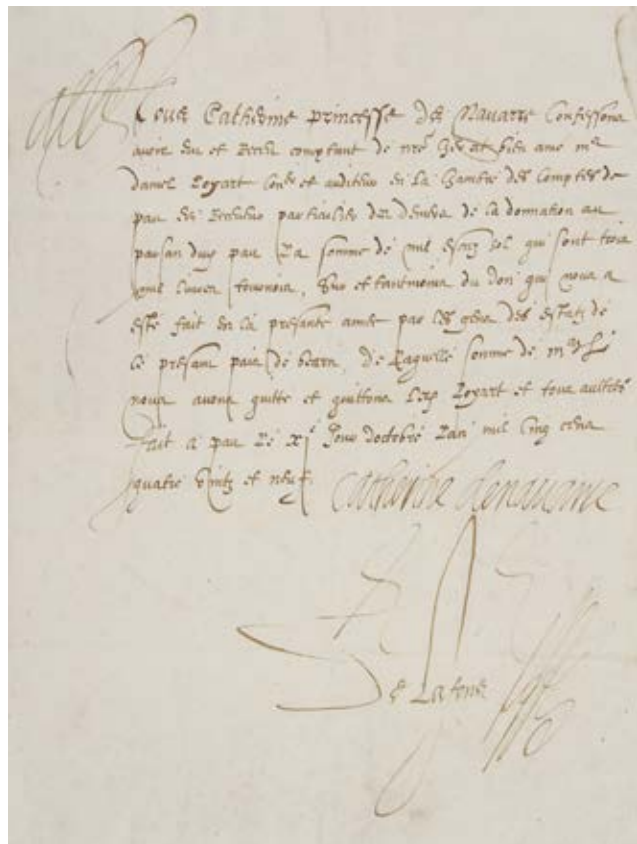 Nous Catherine princesse de Navarre Confessons
avoir eu et Receu comptant de nre cher et bien ame mr
daniel Loyart conr et auditeur en La chambre des Comptes de
pau et Receveur des deniers de la donnation au
parsan duy pau La somme de mil escuz sol qui sont trois
mil Livres tournois, Sur et tantmoins du don qui nous a
este fait en la presante annee par les gens des estatz de
ce present pais de bearn, de Laquelle somme de
nous avons quitte et quittons Led Loyart et tous aultres
fait a pau Le xie Jour doctobre Lan mil cinq cens
quatre vintz et neuf
Catherine denavarre
De Lafons